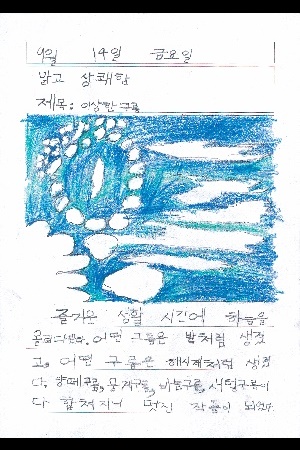 9월 14일 금요일
맑고 상쾌함
제목: 이상한 구름
즐거운 생활 시간에 하늘을
올려다봤다. 어떤 구름은 발처럼 생겼
고, 어떤 구름은 해시계처럼 생겼
다. 양떼구름, 뭉게구름, 비늘구름, 새털구름이
다 합쳐지니 멋진 작품이 되었다.